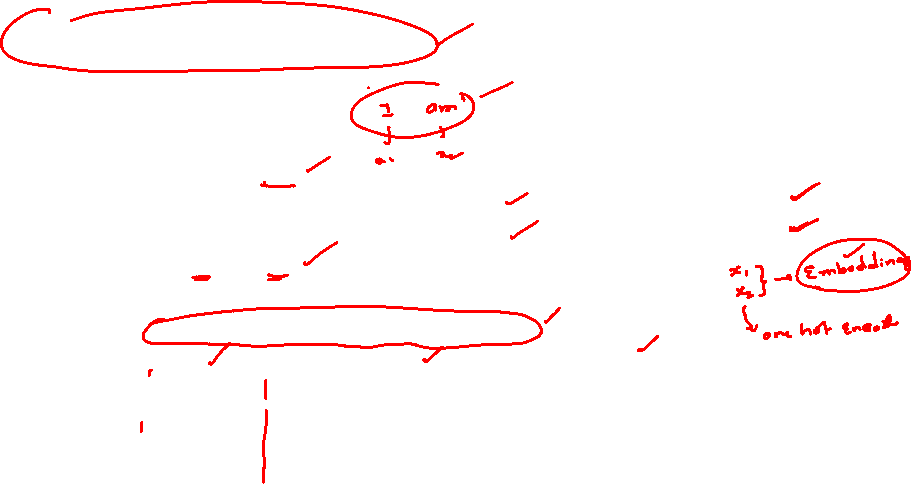 I am
x₁ x₂
x₁
x₂ } → Embedding
one hot Encod